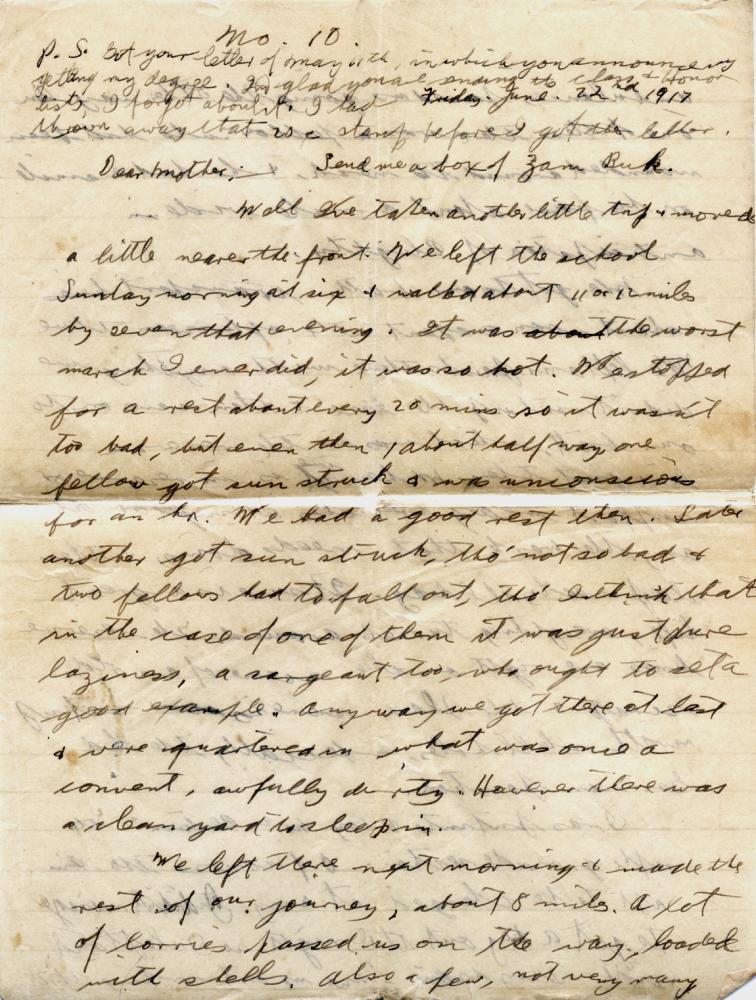 No. 10
P. S. Got your letter of May 11th, in which you announce my
getting my degree. I'm glad you are sending the class & Honor
lists, I forgot about it. I had
Friday. June. 22nd 1917
thrown away that 20 c stamp before I got the letter.
Dear Mother; Send me a box of Zam Buk.
Well I've taken another little trip & moved
a little nearer the front. We left the school
Sunday morning at six & walked about 11 or 12 miles
by seven that evening. It was about the worst
march I ever did, it was so hot. We stopped
for a rest about every 20 mins so it wasn't
too bad, but even then, about half way one
fellow got sun struck & was unconscious
for an hr. We had a good rest then. Later
another got sun struck, tho' not so bad &
two fellows had to fall out, tho' I think that
in the case of one of them it was just pure
laziness, a sargeant too, who ought to set a
good example. Anyway we got there at last
& were quartered in what was once a
convent, awfully dirty. However there was
a clean yard to sleep in.
We left there next morning & made the
rest of our journey, about 8 miles. A lot
of lorries passed us on the way, loaded
with shells. Also a few, not very many